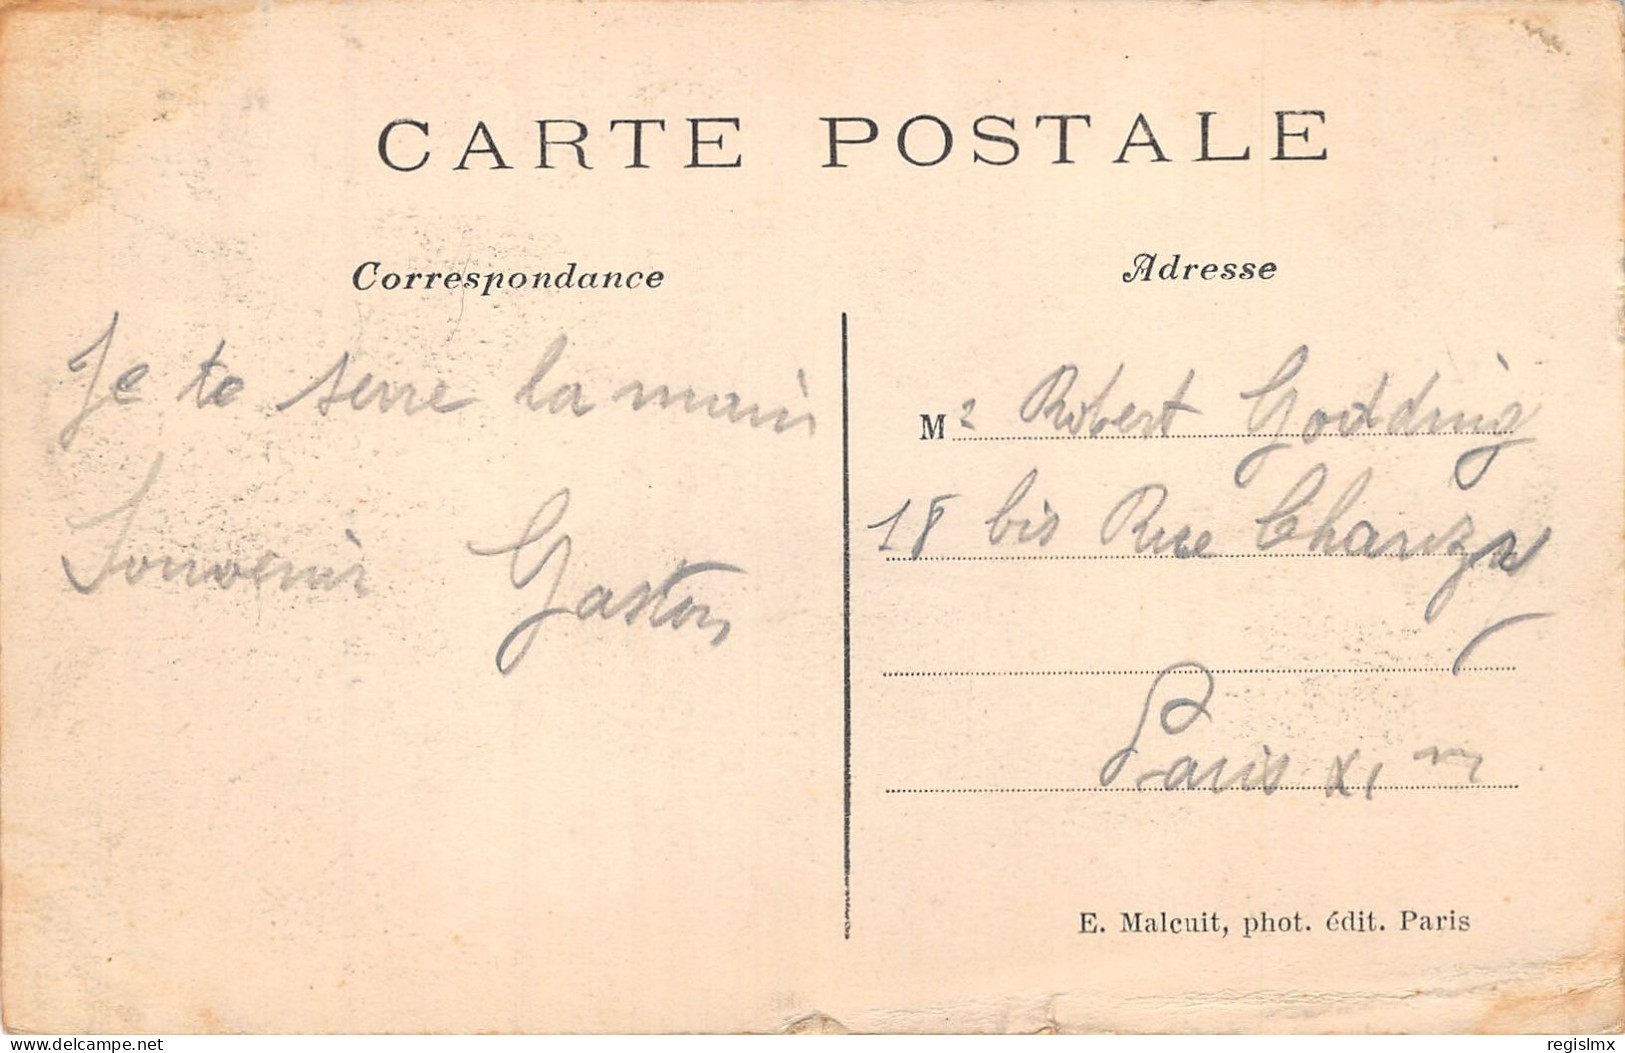 CARTE POSTALE
Correspondance
Je te serre la main
Souvenir Gaston
Adresse
Mr Robert Godding
18 bis Rue Chanzy
Paris XIm
E. Malcuit, phot. édit. Paris
www.delcampe.net
regislmx